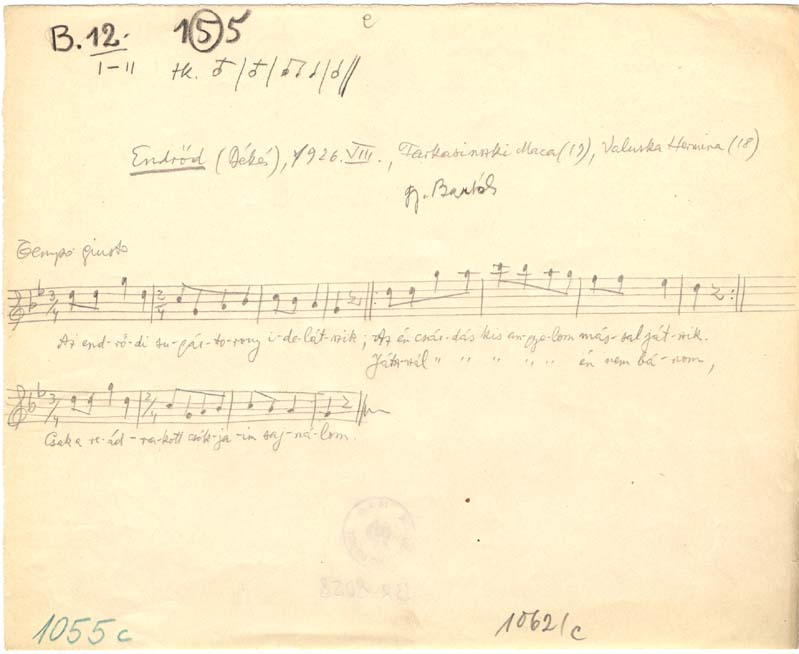 B. 12. 155 e
I-II tk.
Endrőd (Békés), 1926. VIII., Farkasinszki Maca (19), Valuska Hermina (18)
gy. Bartók
Tempo giusto
3/4 2/4
Az end-rő-di su-gár-to-rony i-de-lát-szik; Az én csár-dás kis an-gya-lom más-sal ját-szik.
Játsszál " " " " " " én nem bá-nom,
3/4 2/4
Csak a re-ád-ra-kott csók-ja-im saj-ná-lom.
1055c 1062/c